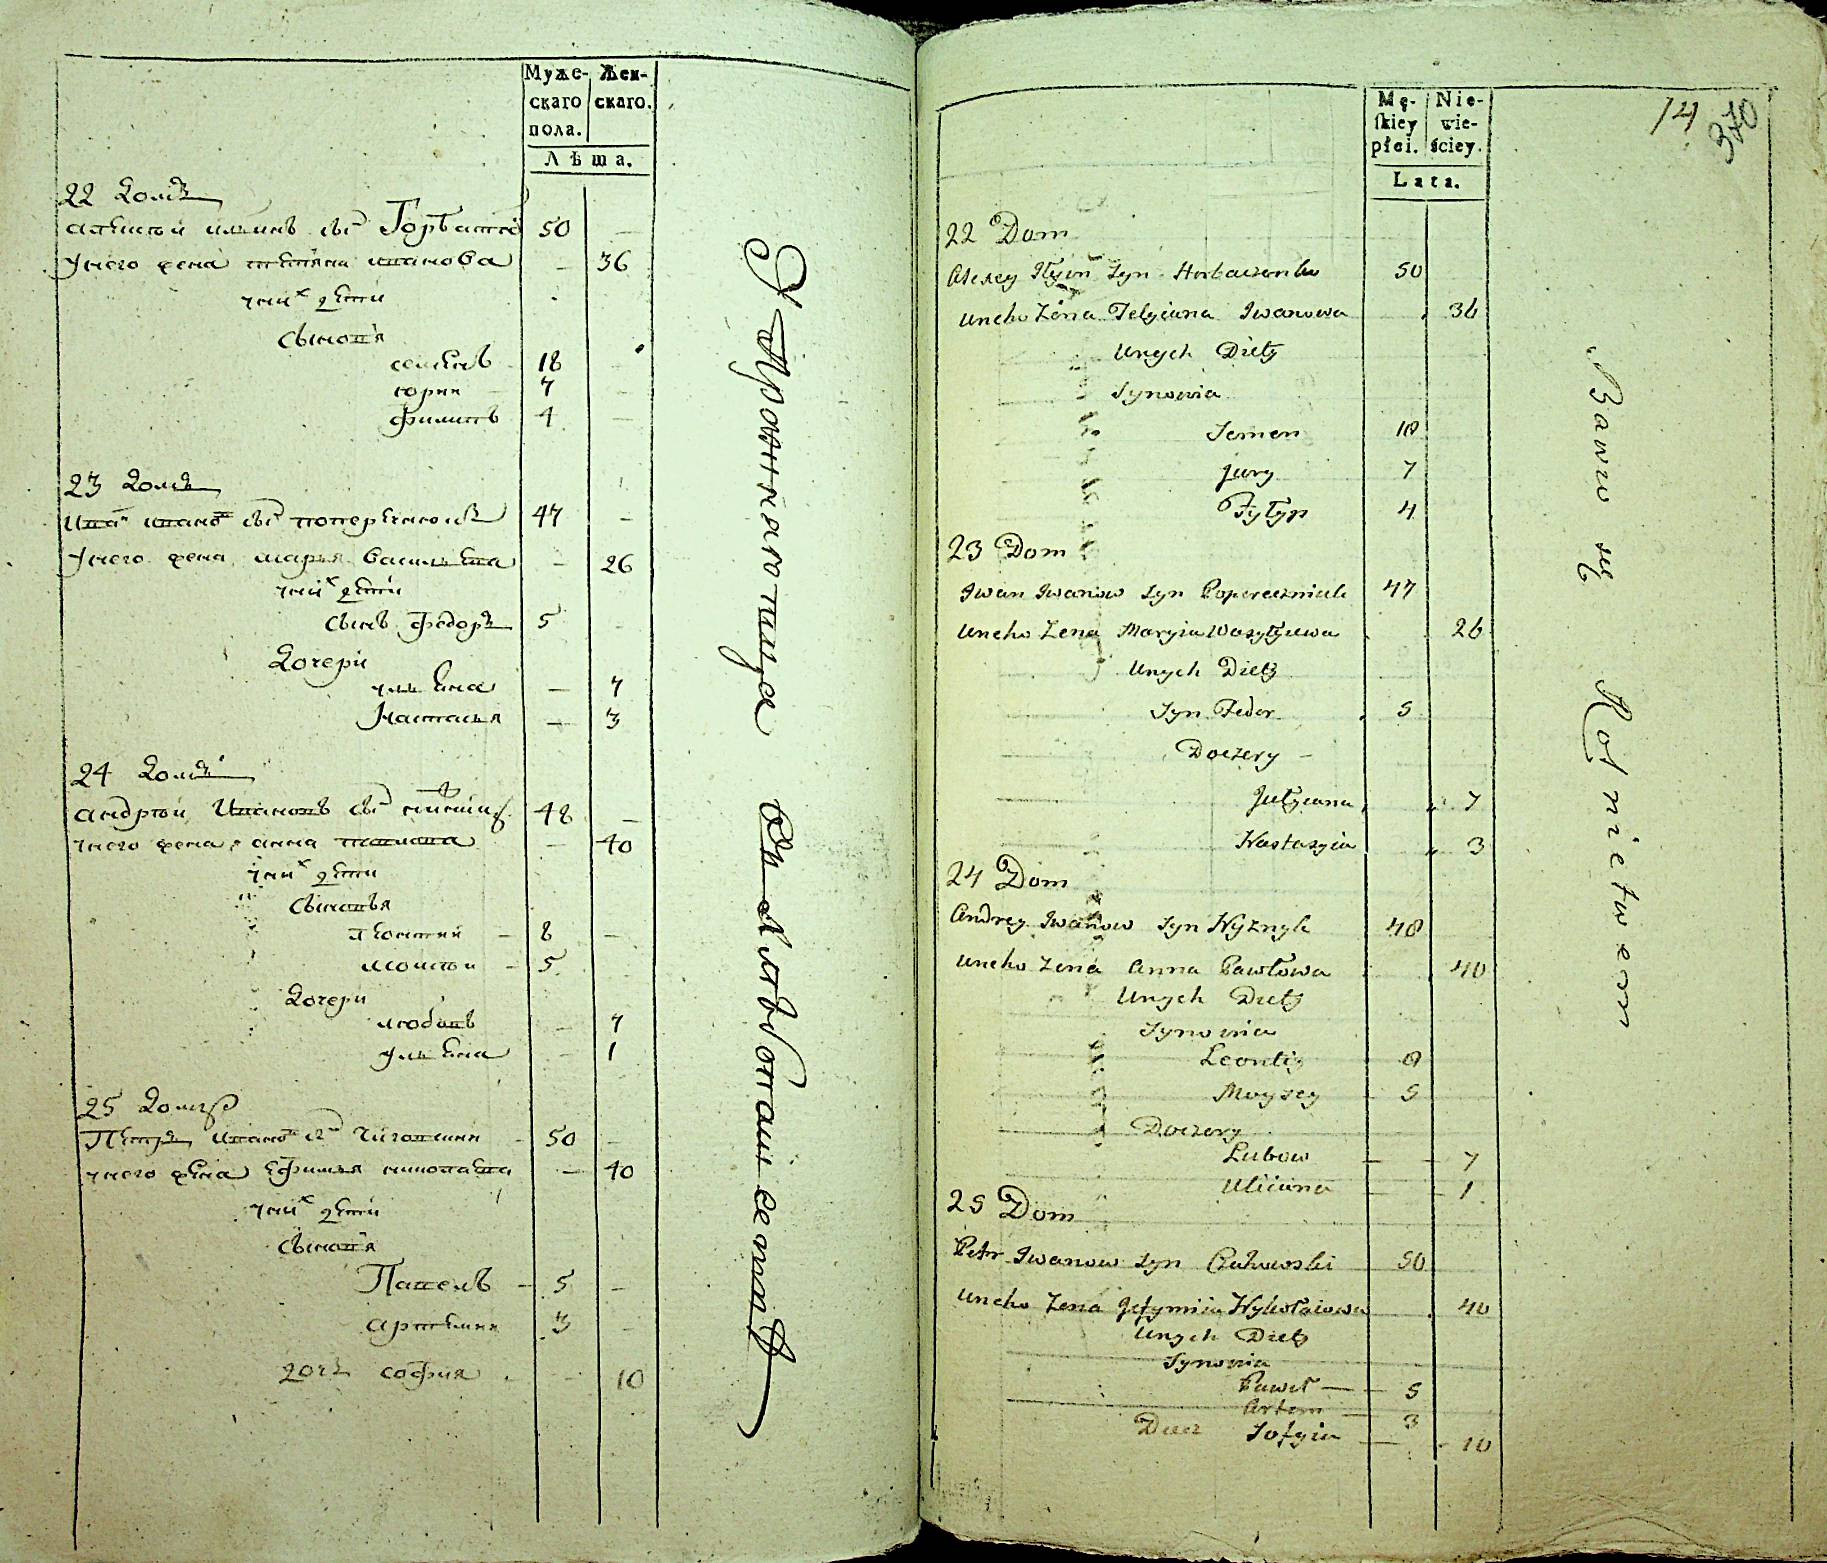 Муже-
скаго
пола.
Жен-
скаго.
Лѣта.
22 домъ
Алексѣй Ильинъ сынъ Горбаченко 50 —
У него жена Татяна Иванова — 36
У них дѣти
Сыновя
Семенъ 18
Юрий 7 —
Филипъ 4 —
23 домъ
Иванъ Ивановъ сынъ Поперечнюкъ 47 —
У него жена Марья Василева — 26
У них дѣти
Сынъ Федоръ 5 —
Дочери
Ульена — 7
Настасья — 3
24 домъ
Андрей Ивановъ сынъ 48 —
У него жена Анна Павлова — 40
У них дѣти
Сыновья
Леонтий — 8 —
Моисей — 5 —
Дочери
Любовъ — 7
Ульена — 1
25 домъ
Петръ Ивановъ сынъ 50 —
У него жена Ефимья Николаева — 40
У них дѣти
Сыновя
Павелъ — 5 —
Артемий 3 —
дочъ София — 10
Mę-
skiey
płci.
Nie-
wie-
ściey.
Lata.
14
370
22 Dom
Alexey Ilyin Syn Horbaczenko 50
Uneho Zena Tetyiana Iwanowa 36
Unych Diety
Synowia
Semen 18
Jury 7
Fyłyp 4
23 Dom
Iwan Iwanow Syn Popereczniuk 47
Uneho Zena Maryia Wasyłyiewa 26
Unych Diety
Syn Fedor 5
Doczery —
Julyiana 7
Nastazyia 3
24 Dom
Andrey Iwanow Syn Nyżnyk 48
Uneho Zena Anna Pawłowa 40
Unych Diety
Synowia
Leontiy 8
Moysey 5
Doczery
Lubow — — 7
Uliiana — — 1
25 Dom
Petr Iwanow Syn 50
Uneho Zena Jefymiia Nykołaiowa 40
Unych Diety
Synowia
Paweł — — 5
Artem — 3
Docz Sofyia — - 10
Bawio się